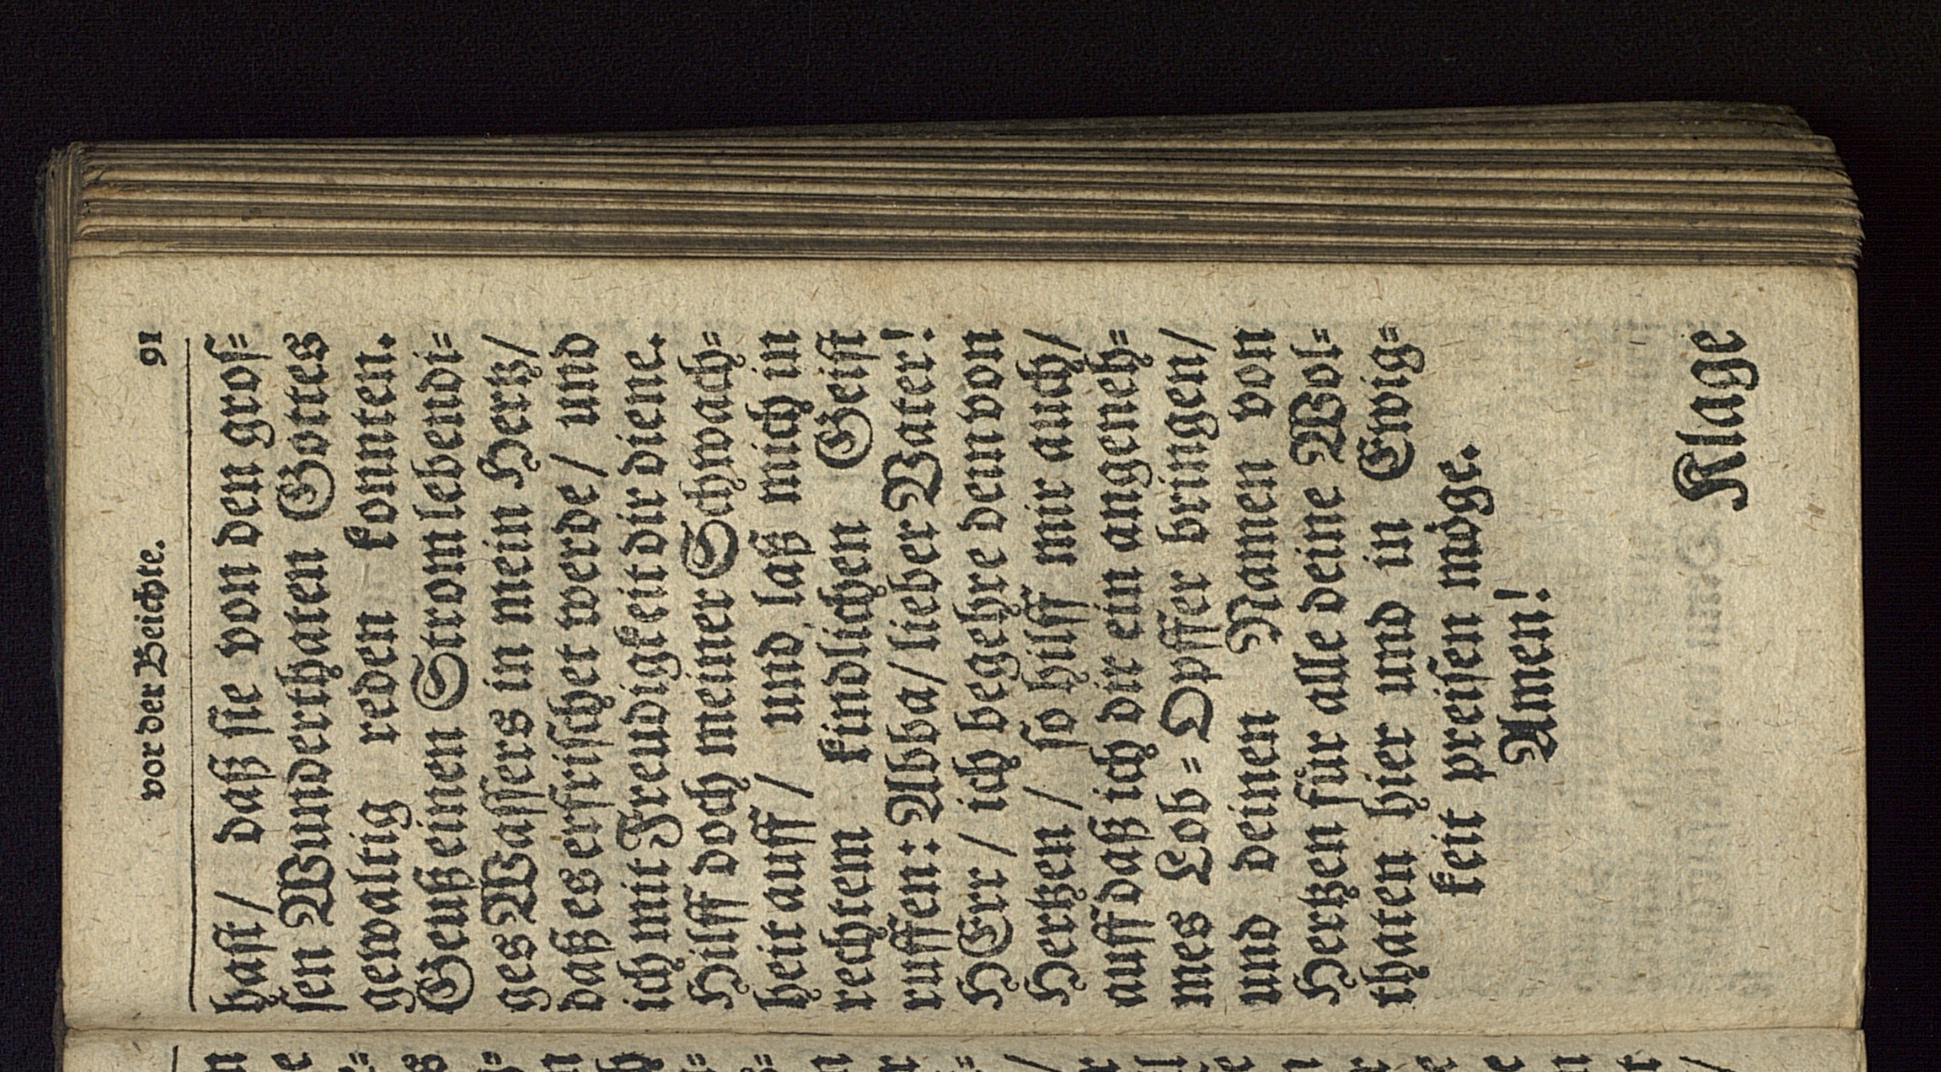 vor der Beichte. 91
hast / daß sie von den gros⸗
sen Wunderthaten Gottes
gewaltig reden konnten.
Geuß einen Strom lebendi⸗
ges Wassers in mein Hertz /
daß es erfrischet werde / und
ich mit Freudigkeit dir diene.
Hilff doch meiner Schwach⸗
heit auff / und laß mich in
rechtem kindlichen Geist
ruffen: Abba / lieber Vater!
HErr / ich begehre dein von
Hertzen / so hilff mir auch /
auff daß ich dir ein angeneh⸗
mes Lob⸗Opffer bringen /
und deinen Namen von
Hertzen fuͤr alle deine Wol⸗
thaten hier und in Ewig⸗
keit preisen moͤge.
Amen!
Klage